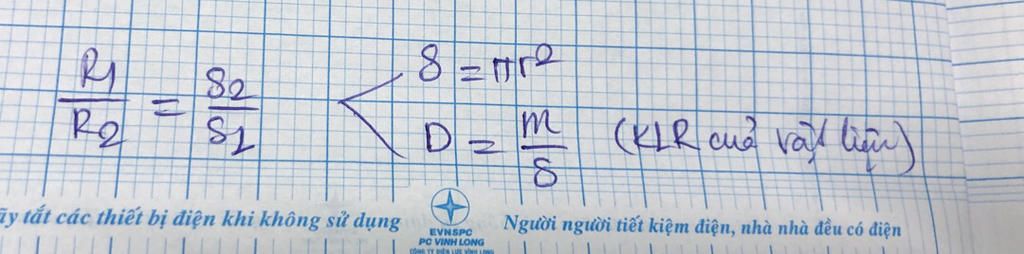 R1/R2 = S2/S1
S = πr²
D = m/S (KLR của vật liệu)
ãy tắt các thiết bị điện khi không sử dụng
EVNSPC
PC VINH LONG
CÔNG TY ĐIỆN LỰC VĨNH LONG
Người người tiết kiệm điện, nhà nhà đều có điện